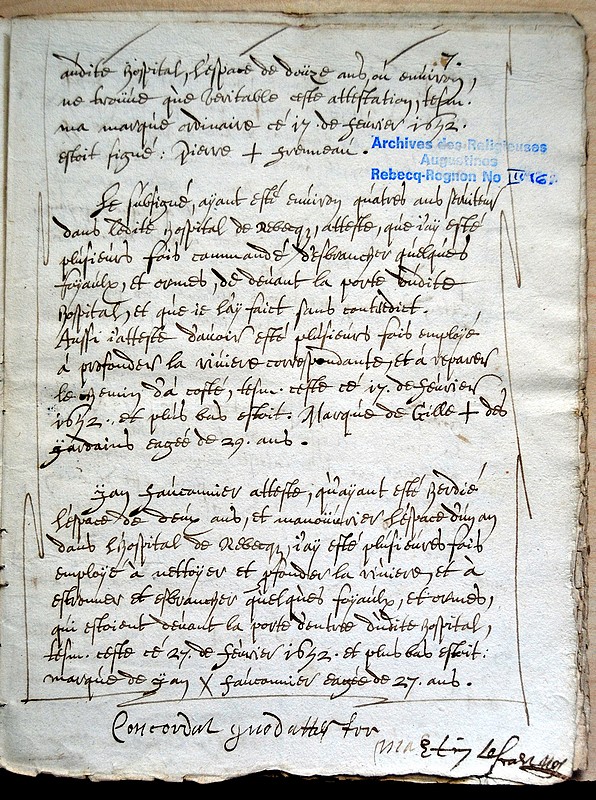 7.
audite hospital, l'espace de douze ans, ou environ,
ne trouve que veritable ceste attestation, tesm.
ma marque ordinaire ce 17. de febvrier 1652.
estoit signé: Pierre + Frenneau.
Archives des Religieuses
Augustines
Rebecq-Rognon No
Je subsigné, ayant esté environ quatres ans serviteur
dans ledite hospital de Rebecq, atteste, que j'ay esté
plusieurs fois commandé d'esbrancher quelques
foyaulx, et ormes, de devant la porte dudite
hospital, et que je l'ay faict sans contredict.
Aussi j'atteste d'avoir esté plusieurs fois employé
à profonder la riviere correspondante, et à reparer
le chemin d'à costé, tesm. ceste ce 17. de febvrier
1652. et plus bas estoit. Marque de Gille + des
Jardains eagée de 29. ans.
Jan fauconnier atteste, qu'ayant esté berdié
l'espace de deux ans, et manouvrier l'espace d'un an
dans l'hospital de Rebecq, j'ay esté plusieures fois
employé à nettoyer et pfonder la riviere, et à
estronner et esbrancher quelques foyaulx, et ormes,
qui estoient devant la porte d'entrée dudite hospital,
tesm. ceste ce 27. de febvrier 1652. et plus bas estoit:
marque de Jan X fauconnier eagée de 27. ans.
Concordat quod attestor